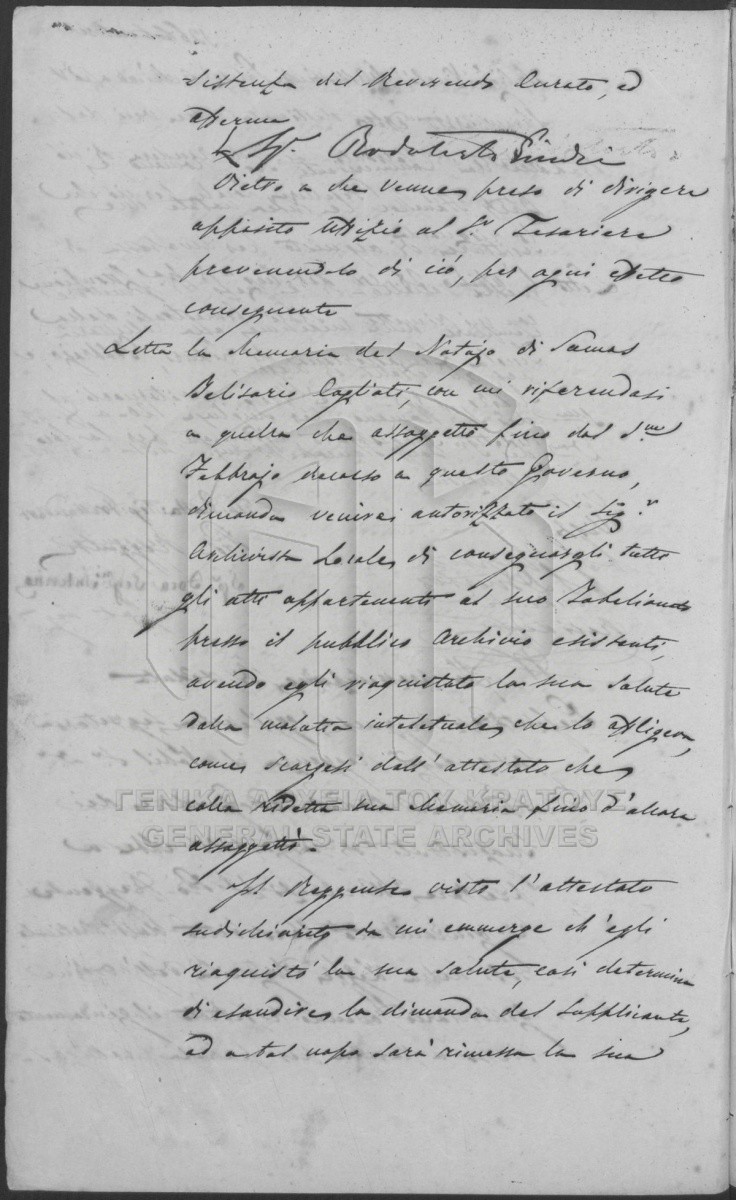 sistenza del Reverendo Curato, ed
afferma
Dietro a che venne preso di dirigere
apposito uffizio al Sr Tesoriere
prevenendolo di ciò, per ogni effetto
conseguente
Letta la Memoria del Notajo di Samos
Belisario Cagliati, con cui riferendosi
a quella che assoggettò fino dal
Febbrajo decorso a questo Governo,
dimanda venirsi autorizzato il Sigr
Archivista Locale di consegnargli tutti
gli atti appartenenti al suo Tabelionato
presso il pubblico Archivio esistenti,
avendo egli riaquistato la sua salute
dalla malattia inteletuale che lo affligeva,
come scorgesi dall' attestato che
colla ridetta sua Memoria fino d'allora
assoggettò.
Il Reggente visto l'attestato
sudichiarito da cui emmerge ch'egli
riaquistò la sua salute, così determina
di esaudire la dimanda del supplicante,
ed a tal uopo sarà rimessa la sua
ΓΕΝΙΚΑ ΑΡΧΕΙΑ ΤΟΥ ΚΡΑΤΟΥΣ
GENERAL STATE ARCHIVES